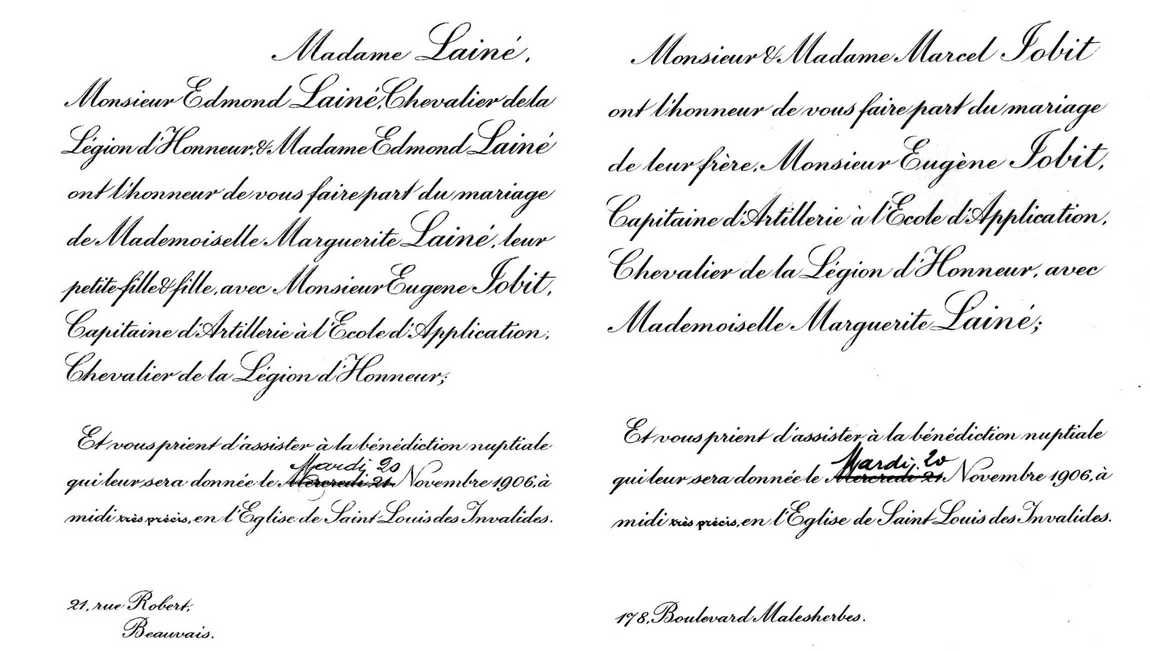 Madame Lainé,
Monsieur Edmond Lainé, Chevalier de la
Légion d'Honneur, & Madame Edmond Lainé
ont l'honneur de vous faire part du mariage
de Mademoiselle Marguerite Lainé, leur
petite-fille & fille, avec Monsieur Eugene Jobit,
Capitaine d'Artillerie à l'Ecole d'Application,
Chevalier de la Légion d'Honneur;
Et vous prient d'assister à la bénédiction nuptiale
Mardi 20
qui leur sera donnée le Mercredi 21 Novembre 1906, à
midi très précis, en l'Eglise de Saint-Louis des Invalides.
21, rue Robert,
Beauvais.
Monsieur & Madame Marcel Jobit
ont l'honneur de vous faire part du mariage
de leur frère, Monsieur Eugène Jobit,
Capitaine d'Artillerie à l'Ecole d'Application,
Chevalier de la Légion d'Honneur, avec
Mademoiselle Marguerite Lainé;
Et vous prient d'assister à la bénédiction nuptiale
Mardi, 20
qui leur sera donnée le Mercredi 21 Novembre 1906, à
midi très précis, en l'Eglise de Saint Louis des Invalides.
178, Boulevard Malesherbes.